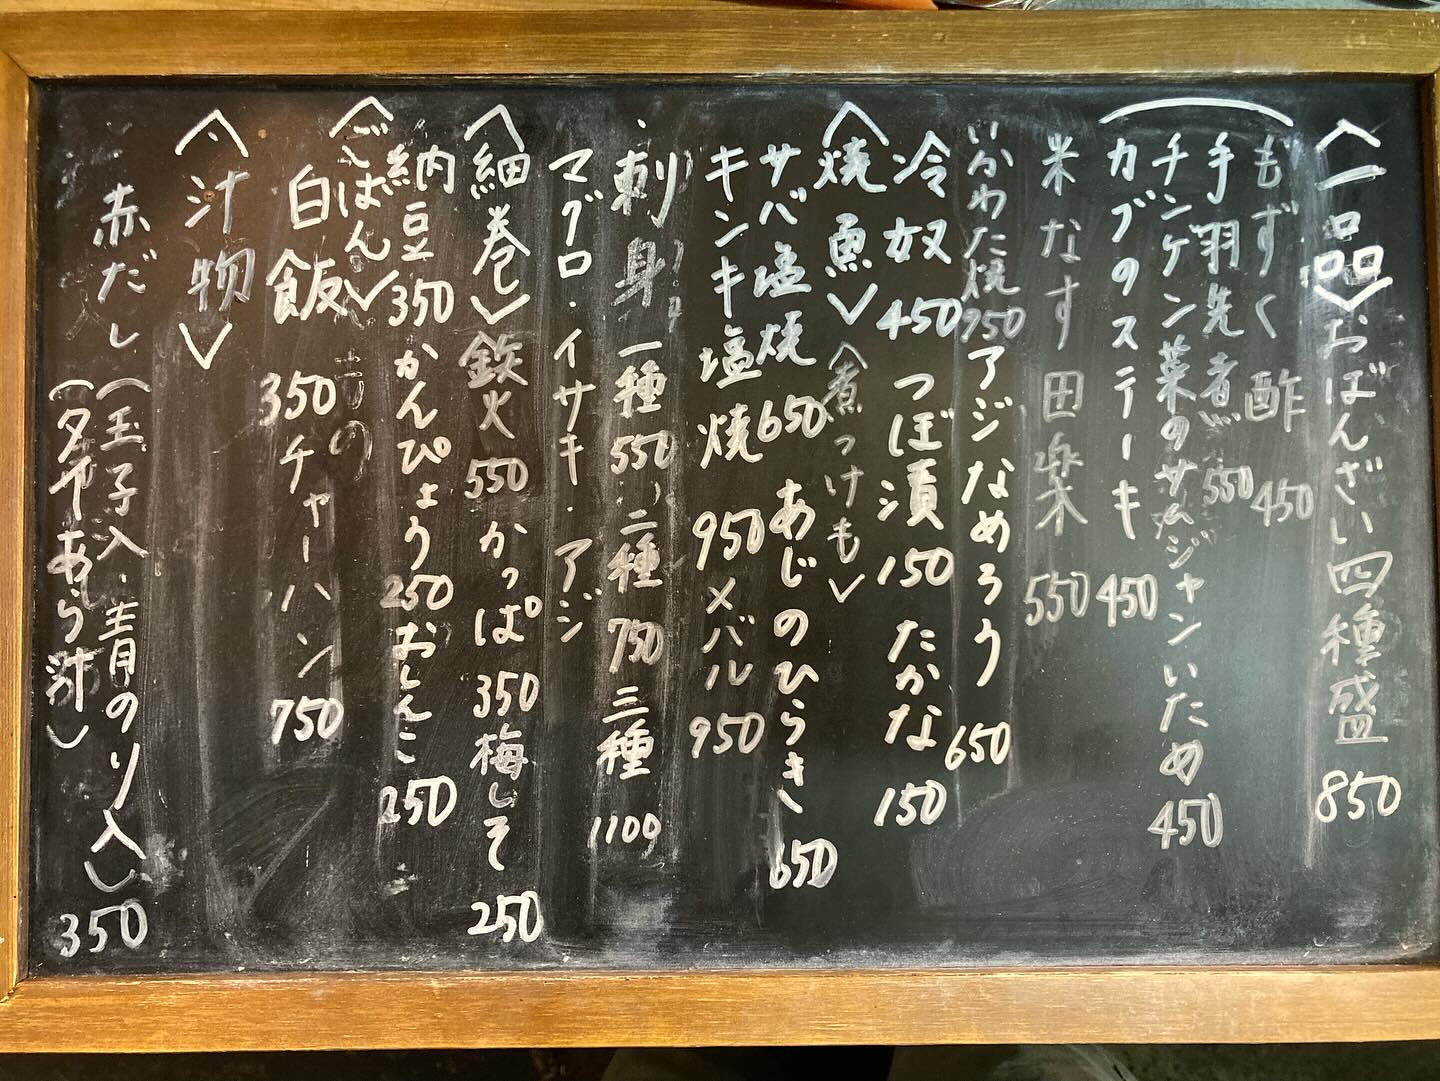 〈一品〉おばんざい四種盛 850
もずく酢 450
手羽先煮 550
チンゲン菜のサムジャンいため 450
カブのステーキ 450
米なす田楽 550
いかわた焼 950 アジなめろう 650
冷奴 450 つぼ漬 150 たかな 150
〈焼魚〉〈煮つけも〉
サバ塩焼 650 あじのひらき 650
キンキ塩焼 950 メバル 950
刺身 一種 550 二種 750 三種 1100
マグロ・イサキ・アジ
〈細巻〉鉄火 550 かっぱ 350 梅しそ 250
納豆 350 かんぴょう 250 おしんこ 250
〈ごはん〉
白飯 350 チャーハン 750
〈汁物〉
赤だし（玉子入・青のり入）350
（タイあら汁）